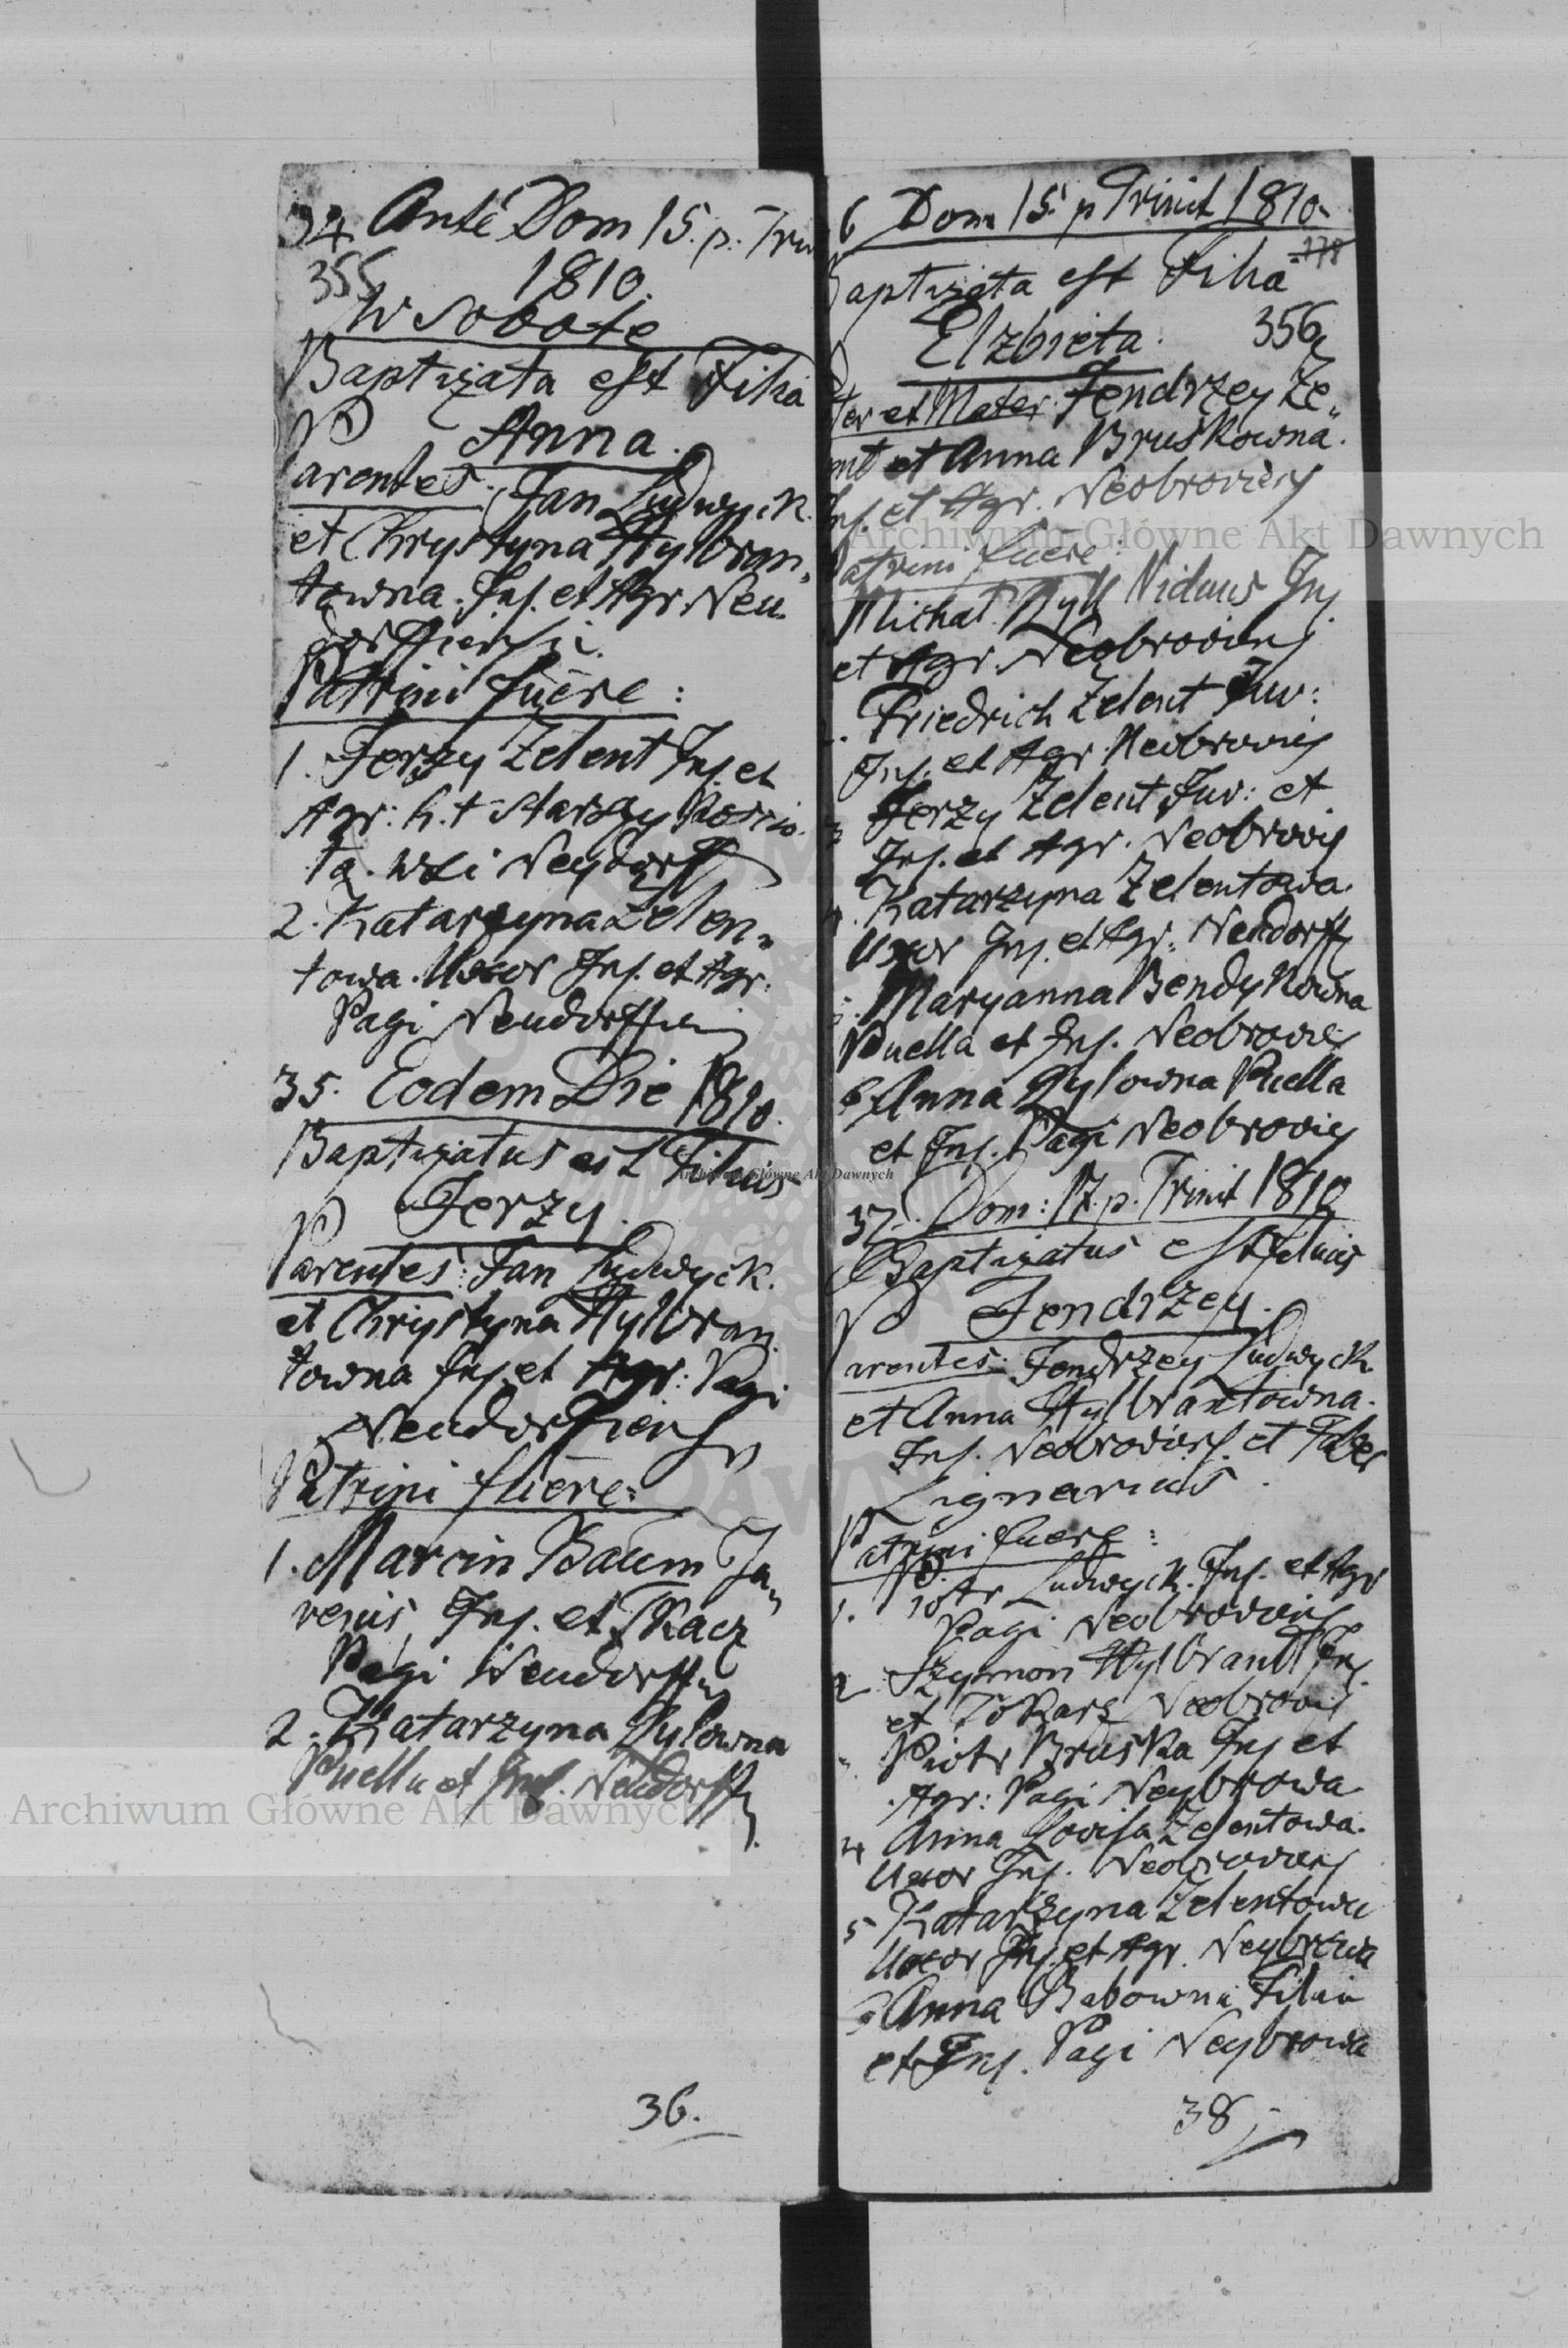 34 Ante Dom 15. p. Trin
355 1810.
W Sobotę
Baptizata est Filia
Anna.
Parentes: Jan Ludwyck.
et Chrystyna Hylbran„
towna. Inq. et Agr. Neu.
dorffiensi.
Patrini fuere:
1. Jerzy Zelent Inq. et
Agr: h. t. Starszy Kościo.
ła. wsi Neydorff
2. Katarzyna Zelen„
towa. Uxor Inq. et Agr.
Pagi Neudorffien
35. Eodem Die 1810.
Baptizatus est Filius
Jerzy.
Parentes: Jan Ludwyck.
et Chrystyna Hylbran
towna Inq. et Agr: Pagi
Neudorffiens
Patrini fuere:
1. Marcin Baum Ju„
venis, Inq. et Tkacz
Pagi Neudorffen
2. Katarzyna Rylowna
Puella et Inq. Neudorff
36.
6 Dom 15. p Trinit 1810.
178
Baptizata est Filia
Elzbieta. 356
ter et Mater. Jendrzey Ze„
ent et Anna Bruskowna.
Inq. et Agr. Neobroviens
Patrini fuere:
Michał Ryll Viduus Inq.
et Agr. Neobroviens
Friedrich Zelent Juv:
Inq. et Agr. Neobroviens
3 Jerzy Zelent Juv: et
Inq. et Agr. Neobrovi
Katarzyna Zelentowa.
Uxor Inq. et Agr. Neudorff
Maryanna Bendykowna
Puella et Inq. Neobrovie
6 Anna Rylowna Puella
et Inq. Pagi Neobrovien
37. Dom: 17. p. Trinit 1810
Baptizatus est Filius
Jendrzey.
Parentes: Jendrzey Ludwyck
et Anna Hylbrantowna.
Inq. Neobroviens. et Faber
Lignarius.
Patrini fuere:
1. Piotr Ludwyck. Inq. et Agr
Pagi Neobroviens.
2 Szymon Hylbrant Inq.
et Tokarz Neobrovi
Piotr Bruska Inq et
Agr: Pagi Neybrowa
4 Anna Lovisa Zelentowa.
Uxor Inq. Neobroviens
5 Katarzyna Zelentowa
Uxor Inq. et Agr. Neybrowa
Anna Babowna Filia
et Inq. Pagi Neybrowa
38
Archiwum Główne Akt Dawnych
Archiwum Główne Akt Dawnych
Archiwum Główne Akt Dawnych